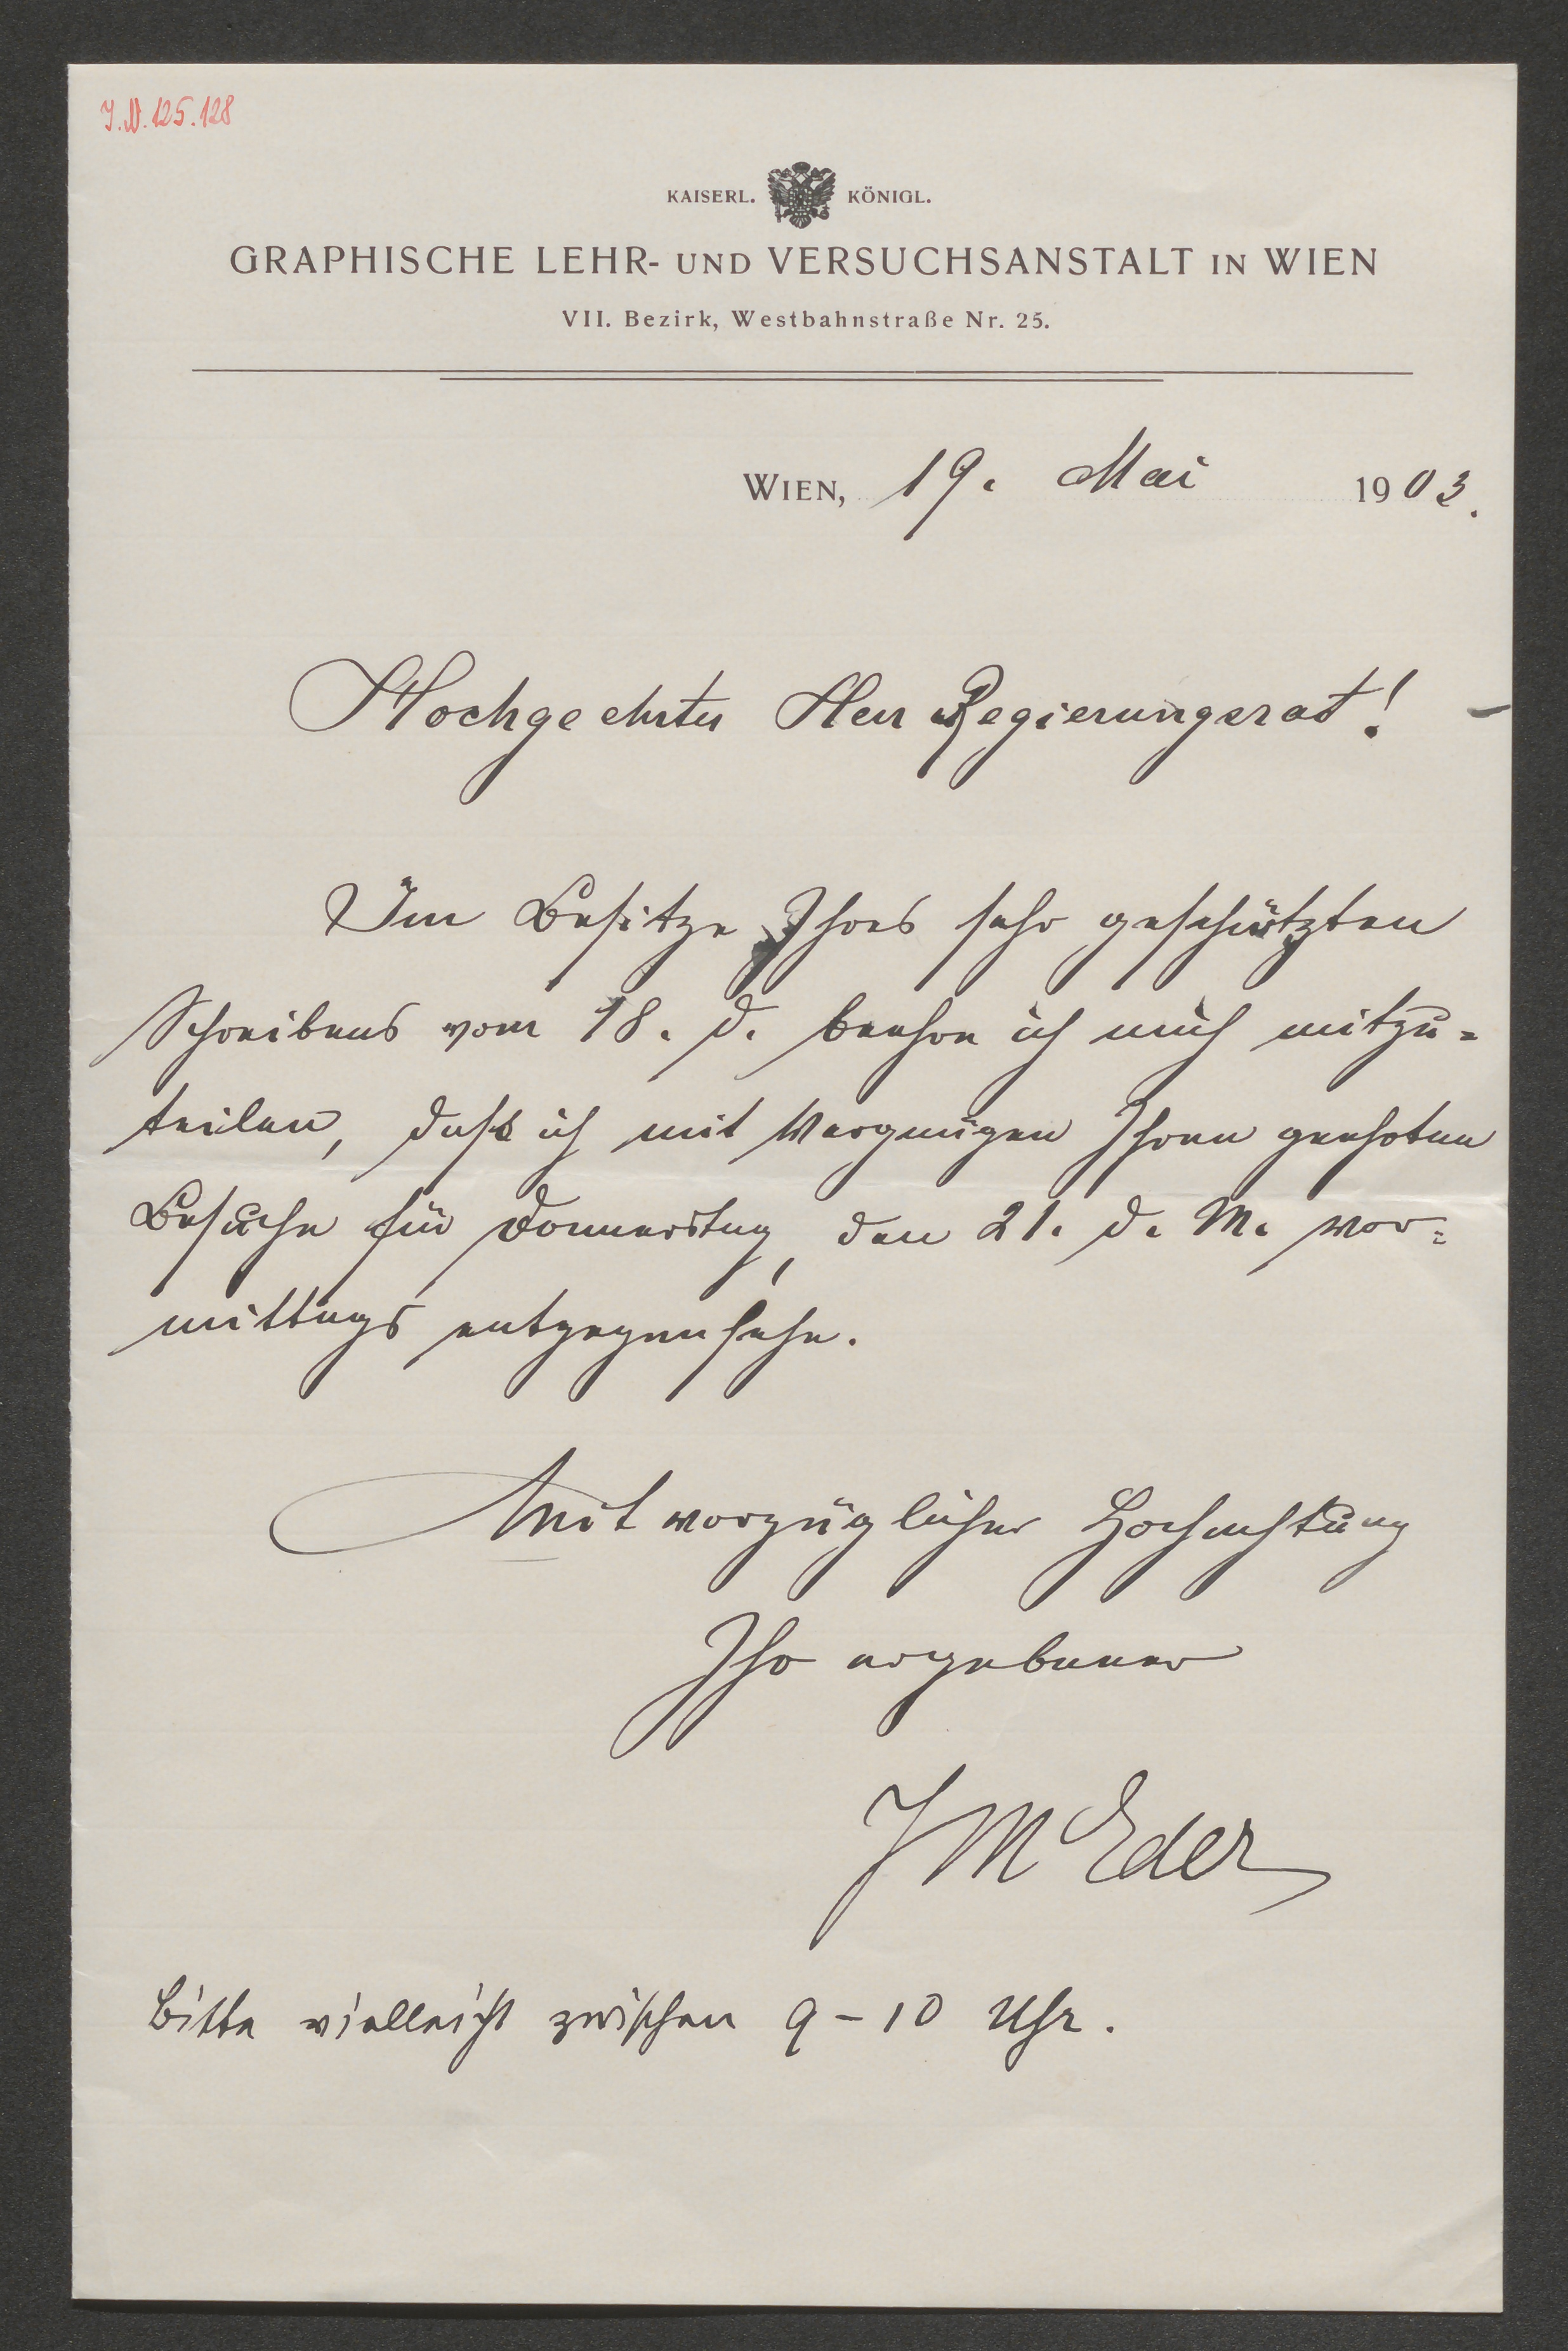 I.N. 125.128
KAISERL. KÖNIGL.
GRAPHISCHE LEHR- UND VERSUCHSANSTALT IN WIEN
VII. Bezirk, Westbahnstraße Nr. 25.
WIEN, 19. Mai 1903.
Hochgeehrter Herr Regierungsrat!
Im Besitze Ihres sehr geschätzten
Schreibens vom 18. d. beehre ich mich mitzu=
teilen, dass ich mit Vergnügen Ihrem geehrten
Besuche für Donnerstag, den 21. d. M. vor=
mittags entgegensehe.
Mit vorzüglicher Hochachtung
Ihr ergebener
J M Eder
Bitte vielleicht zwischen 9-10 Uhr.